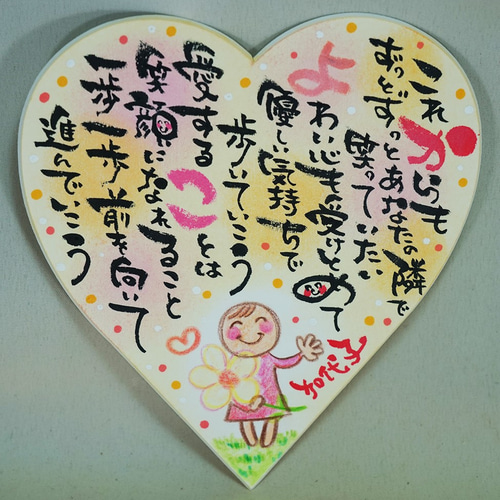 これからも
ずっとずっとあなたの隣で
笑っていたい
よわい心も受けとめて
優しい気持ちで
歩いていこう
愛することは
笑顔になれること
一歩一歩前を向いて
進んでいこう